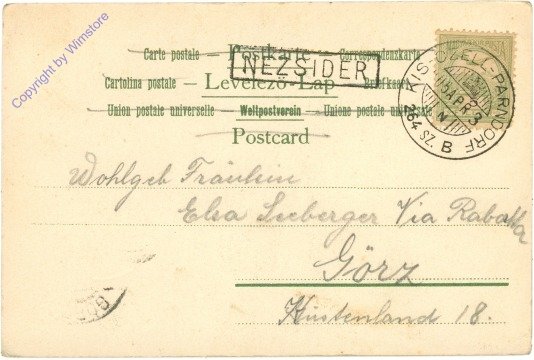 Copyright by Wimstore
Carte postale - Postkarte - Correspondenskarta
NEZSIDER
Cartolina postale - Levelező-Lap - Briefkaart
Union postale universelle - Weltpostverein - Unione postale universale
Postcard
KIS-CZELL-PARNDORF
APR. 3
264 SZ. B
Wohlgeb Fräulein
Elsa Seeberger Via Rabatta
Görz
Küstenland 18.